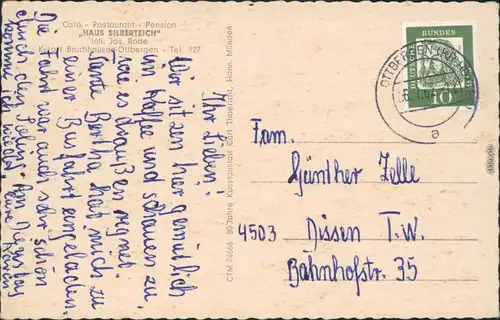 Café - Restaurant - Pension
„HAUS SILBERTEICH"
Inh. Jos. Rode
Kurort Bruchhausen-Ottbergen - Tel. 127
Ihr Lieben!
Wir sitzen hier gemütlich
im Kaffee und schauen zu
wie es draußen regnet.
Tante Bertha hat mich zu
einer Busfahrt eingeladen.
Die Fahrt war auch sehr schön
durch den Solling. Am Dienstag
komme ich wieder. Eure
Karin
CTM 74666 80 Jahre Kunstanstalt Carl Thoericht, Hann. Münden
DEUTSCHE BUNDESPOST
10
OTTBERGEN
a
Fam.
Günther Zelle
4503 Dissen T.W.
Bahnhofstr. 35